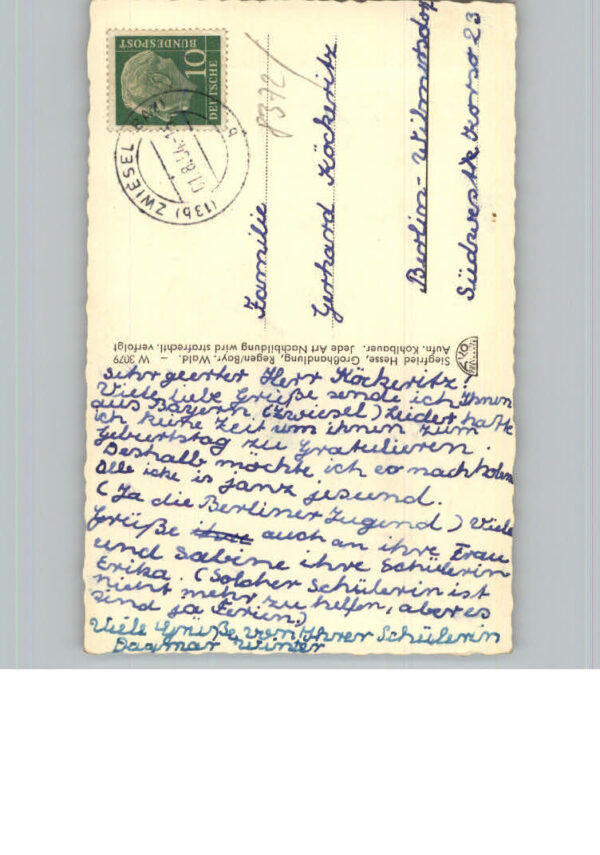 Sehr geerter Herr Köckeritz!
Viele liebe Grüße sende ich Ihnen
aus Bayern. (Zwiesel) Leider hatte
ich keine Zeit um ihnen zum
Geburtstag zu gratulieren.
Deshalb möchte ich es nachholen
Olle icke is janz jesund.
(Ja die Berliner Jugend) Viele
Grüße auch an ihre Frau
und Sabine ihre Schülerin
Erika. (Solcher Schülerin ist
nicht mehr zu helfen, aber es
sind ja Ferien)
Viele Grüße von Ihrer Schülerin
Dagmar Winter
Siegfried Hesse, Großhandlung, Regen/Bayr. Wald. – W 3079
Aufn. Kohlbauer. Jede Art Nachbildung wird strafrechtl. verfolgt
Familie
Gerhard Köckeritz
Berlin-Wilmersdorf
Südwestkorso 23
8372/
DEUTSCHE
BUNDESPOST
10
(13b) ZWIESEL (BAY)
b